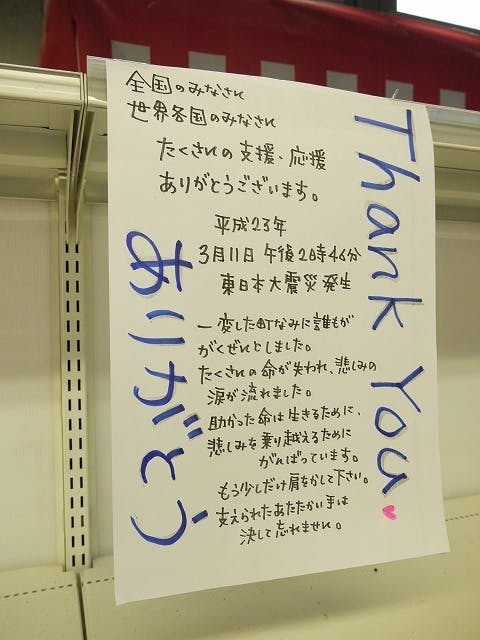 全国のみなさん
世界各国のみなさん
たくさんの支援、応援
ありがとうございます。
平成23年
3月11日 午後2時46分
東日本大震災発生
一変した町なみに誰もが
がくぜんとしました。
たくさんの命が失われ、悲しみの
涙が流れました。
助かった命は生きるために、
悲しみを乗り越えるために
がんばっています。
もう少しだけ肩をかして下さい。
支えられたあたたかい手は
決して忘れません。
ありがとう
Thank You